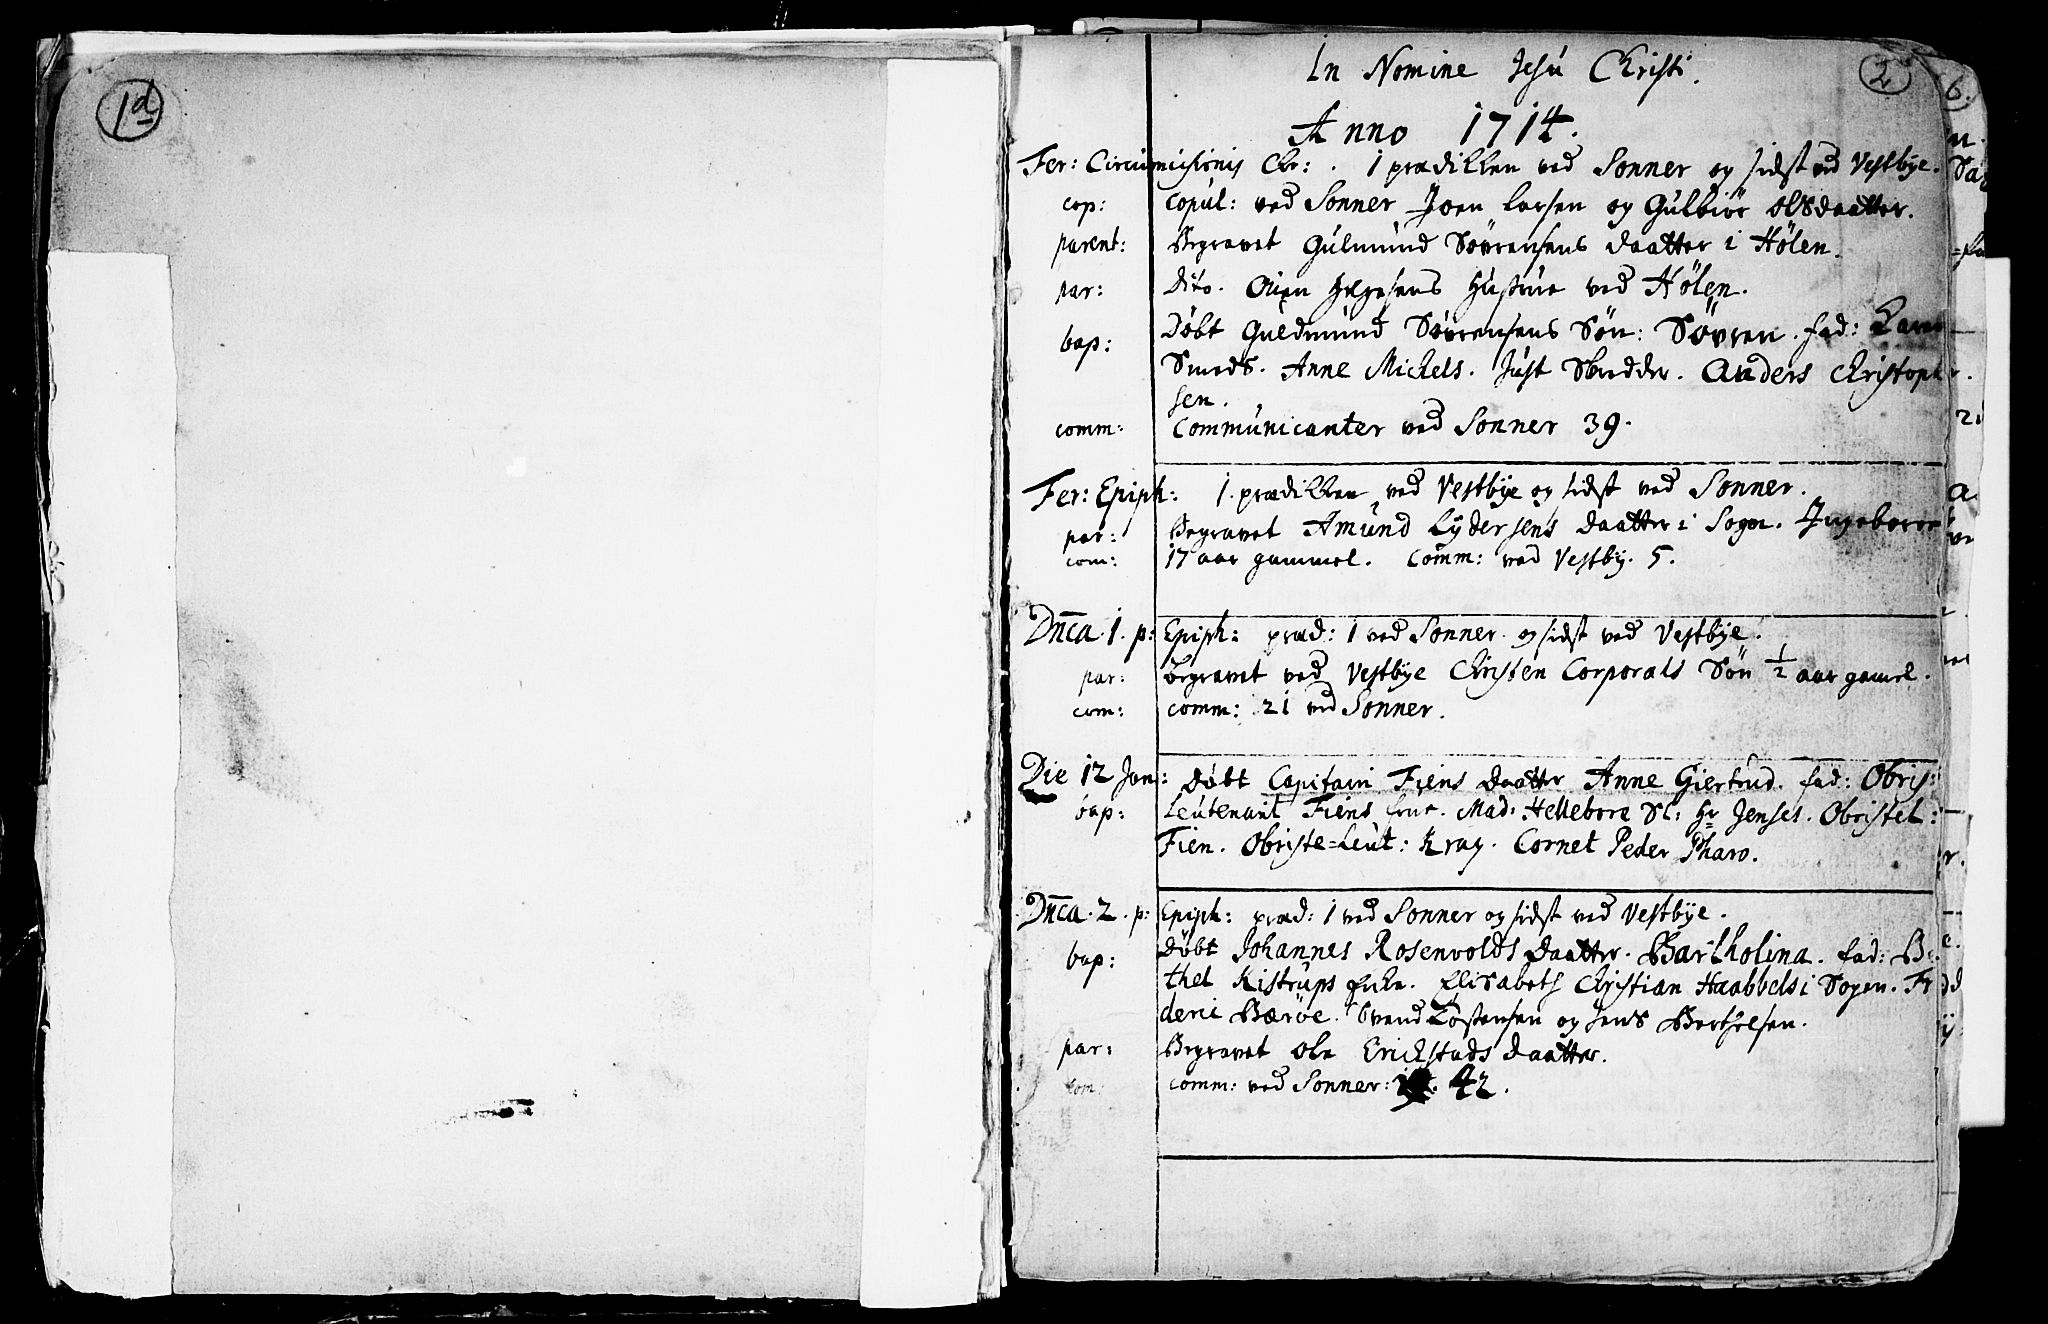 1d
2
In Nomine Jesu Christi.
Anno 1714.
Fer: Circumcisionis Chr: . 1 prædikken ved Sonner og sidst ved Vestbye.
cop: Copul: ved Sonner Joen Larsen og Gulbiør Olsdaatter.
parent: Begravet Gulmund Søvrensens daatter i Hølen.
par: dito. Hustrue ved Hølen.
bap: Døbt Guldmund Søvrensens Søn: Søvren. fad:
Smeds. Anne Michels. Just Skredder. Anders Christoph
sen.
comm: Communicanter ved Sonner 39.
Fer: Epiph: 1. prædikken ved Vestbye og sidst ved Sonner.
par: Begravet Amund Lydersens daatter i Sogn.
com: 17 aar gammel. Comm: ved Vestby. 5.
Dn̄ca. 1. p: Epiph: præd: 1 ved Sonner. og sidst ved Vestbye.
par: Begravet ved Vestbye Christen Corporals Søn ½ aar gamel.
com: comm: 21 ved Sonner.
Die 12 Jan: Døbt Capitain Fiens daatter Anne Giertrud. fad: Obris:
bap: Leutenant Fiens frue. Mad: Hellebore Sl: Hr Jenses. Obristel:
Fien. Obriste=Leut: Krag. Cornet Peder Pharo.
Dn̄ca. 2. p: Epiph: præd: 1 ved Sonner og sidst ved Vestbye.
bap: Døbt Johannes Rosenvolds daatter. Bartholina. fad: B
thel Kistrups Elisabeth Christian Haabbels i Sogen. Fr
deric Bærøe. Svend Tostensen og Jens Berthelsen.
par: Begravet Ole Erickstads daatter.
com: comm: ved Sonner: 42.